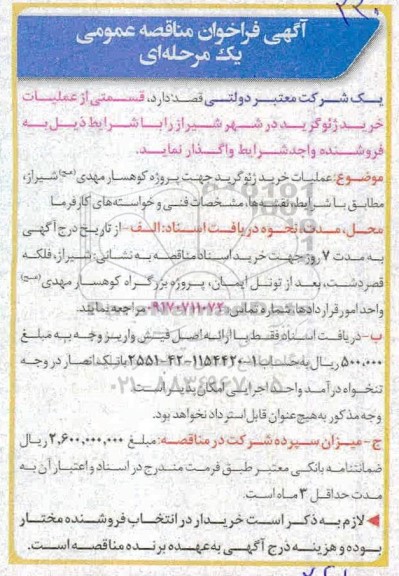 ۲۲۰
آگهی فراخوان مناقصه عمومی
یک مرحله‌ای
یک شرکت معتبر دولتی قصد دارد، قسمتی از عملیات
خرید ژئوگرید در شهر شیراز را با شرایط ذیل به
فروشنده واجد شرایط واگذار نماید.
موضوع: عملیات خرید ژئوگرید جهت پروژه کوهسار مهدی (عج) شیراز،
مطابق با شرایط، نقشه‌ها، مشخصات فنی و خواسته‌های کارفرما
محل، مدت، نحوه دریافت اسناد: الف- از تاریخ درج آگهی
به مدت ۷ روز جهت خرید اسناد مناقصه به نشانی: شیراز، فلکه
قصردشت، بعد از تونل ایمان، پروژه بزرگراه کوهسار مهدی (عج)
واحد امور قراردادها، شماره تماس: مراجعه نمایند.
ب- دریافت اسناد فقط با ارائه اصل فیش واریز وجه به مبلغ
۵۰۰.۰۰۰ ریال به حساب ۱-۱۱۵۴۴۲۰-۴۲-۲۵۵۱ بانک انصار در وجه
تنخواه درآمد واحد اجرایی امکان پذیر است.
وجه مذکور به هیچ عنوان قابل استرداد نخواهد بود.
ج- میزان سپرده شرکت در مناقصه: مبلغ ۲,۶۰۰,۰۰۰,۰۰۰ ریال
ضمانتنامه بانکی معتبر طبق فرمت مندرج در اسناد و اعتبار آن به
مدت حداقل ۳ ماه است.
◄ لازم به ذکر است خریدار در انتخاب فروشنده مختار
بوده و هزینه درج آگهی به عهده برنده مناقصه است.